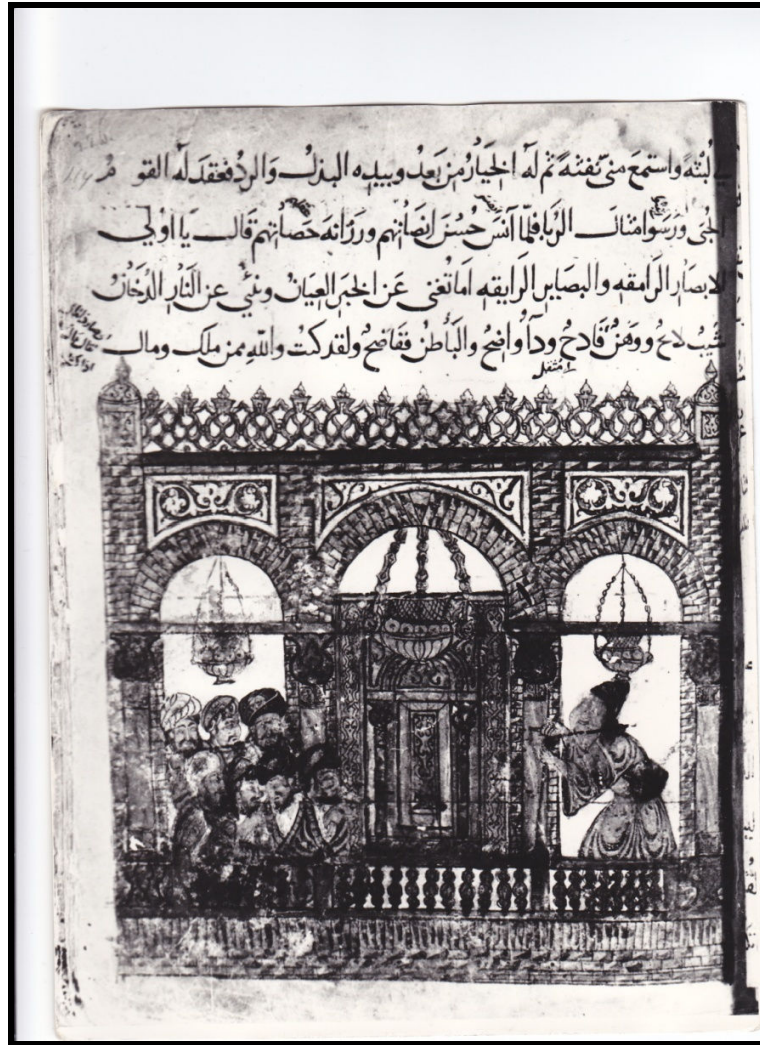 لبثةً واستمع منّي نفثةً ثم له الخيارُ من بعدُ وبيده البذلُ والردُ فعقد له القومُ
الحُبَى ورَسَوا امثال الرُبا فلمّا آنسَ حُسْنَ انصاتهم ورَزانة حَصاتهم قال يا اولي
الابصار الرامقه والبصاير الرايقه اما تغنى عن الخبر العيان وتنبي عن النار الدخان
شيبٌ لاحٌ ووهنٌ فادحٌ وداٌ واضحٌ والباطنُ ففاضحٌ ولقد كنت والله ممن ملك ومال
اى مثقل